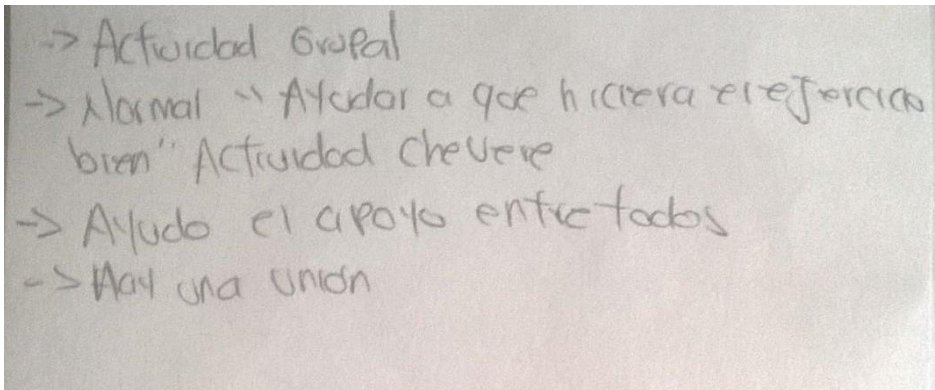 -> Actividad Grupal
-> Normal "Ayudar a que hiciera el ejercicio
bien" Actividad Chevere
-> Ayudo el apoyo entre todos
-> Hay una unión